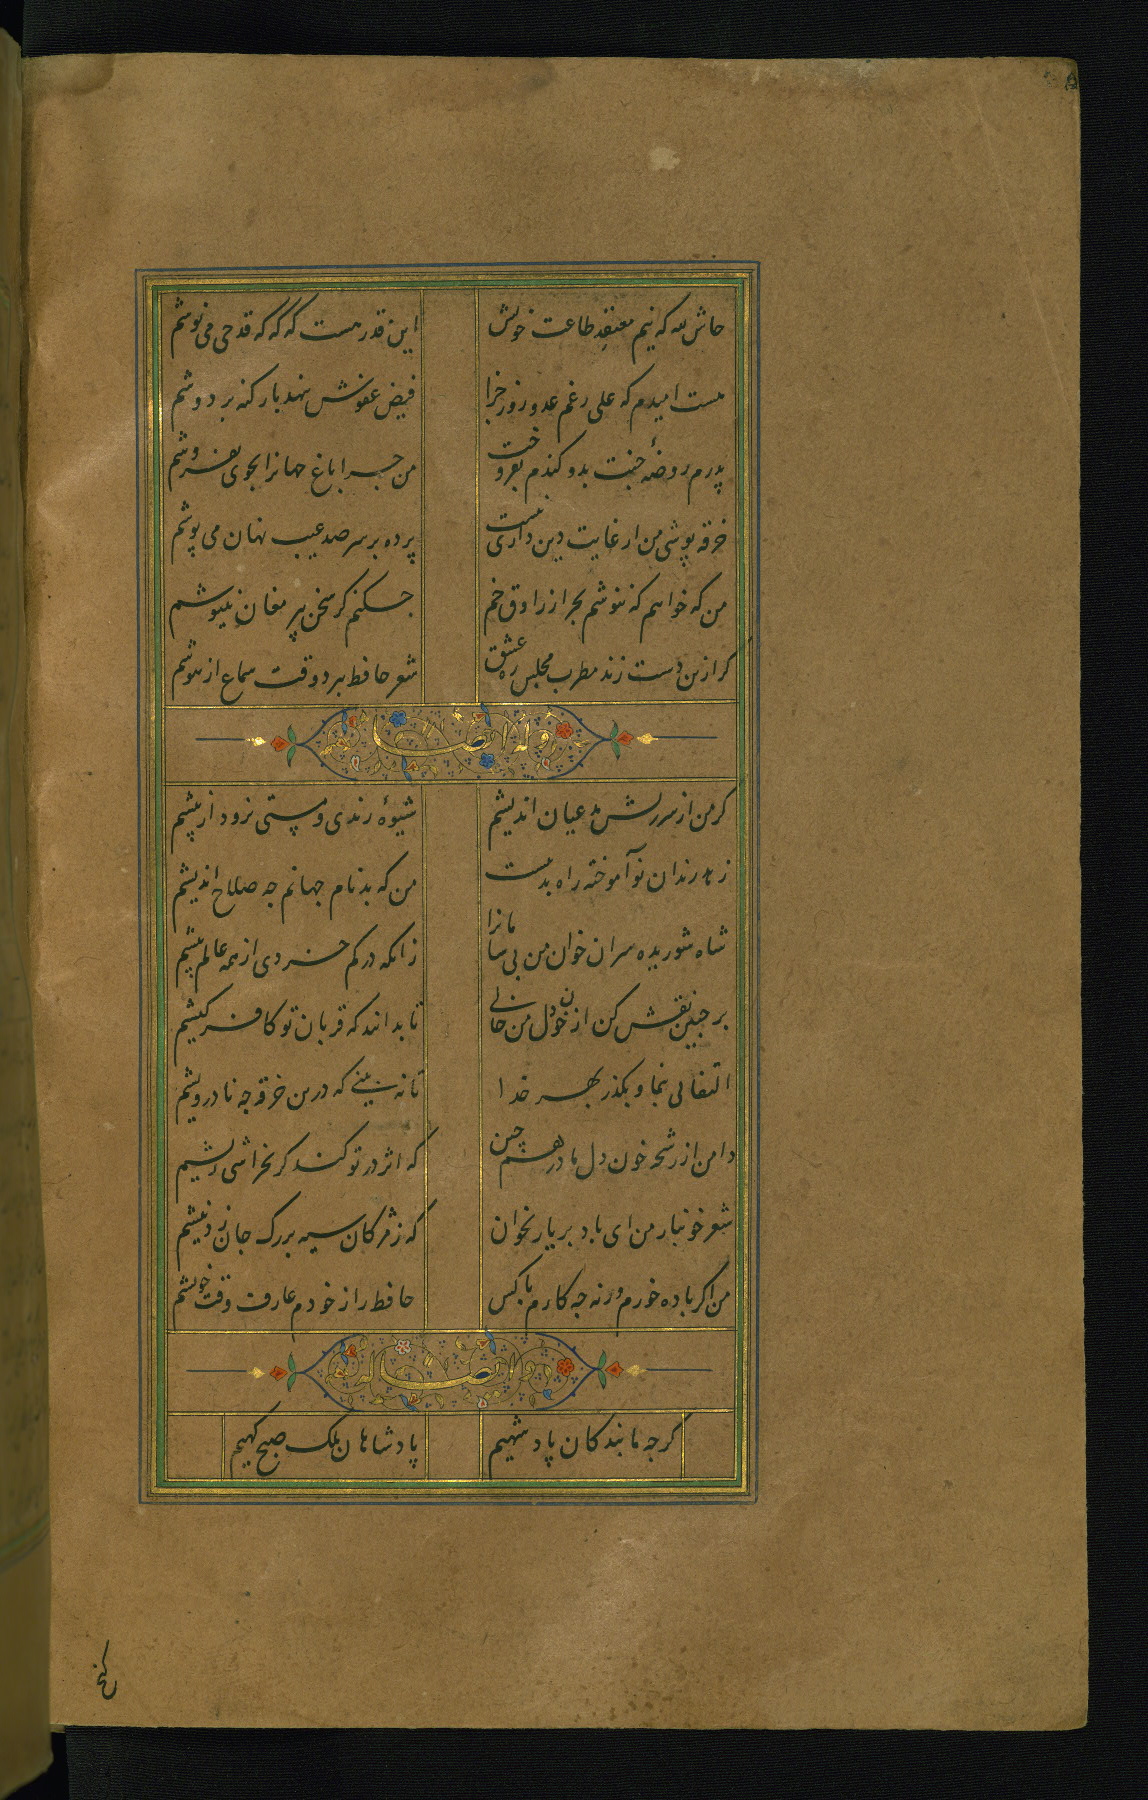 حاش لله که نیم معتقد طاعت خویش
این قدر هست که گه گه قدحی می نوشم
هست امیدم که علی رغم عدو روز جزا
فیض عفوش ننهد بار گنه بر دوشم
پدرم روضهٔ جنت بدو گندم بفروخت
من چرا باغ جهانرا بجوی نفروشم
خرقه پوشی من از غایت دین داری نیست
پرده بر سر صد عیب نهان می پوشم
من که خواهم که ننوشم بجز از راوق خم
چکنم گر سخن پیر مغان ننیوشم
گر ازین دست زند مطرب مجلس ره عشق
شعر حافظ ببرد وقت سماع از هوشم
وله ایضا
گر من از سرزنش مدعیان اندیشم
شیوهٔ رندی و مستی نرود از پیشم
زهد رندان نوآموخته راه بدیست
من که بدنام جهانم چه صلاح اندیشم
شاه شوریده سران خوان من بی سامانرا
زانکه در کم خردی از همه عالم بیشم
بر جبین نقش کن از خون دل من خالی
تا بدانند که قربان تو کافر کیشم
التفاتی بنما و بگذر بهر خدا
تا نه بینی که درین خرقه چه نادرویشم
دامن از رشحه خون دل ما در هم چین
که اثر در تو کند گر بخراشی ریشم
شعر خونبار من ای باد بر یار بخوان
که ز مژگان سیه بر رگ جان زد نیشم
من اگر باده خورم ورنه چه کارم با کس
حافظ راز خودم عارف وقت خویشم
وله ایضا
گرچه ما بندگان پادشهیم
پادشاهان ملک صبح گهیم
گنج